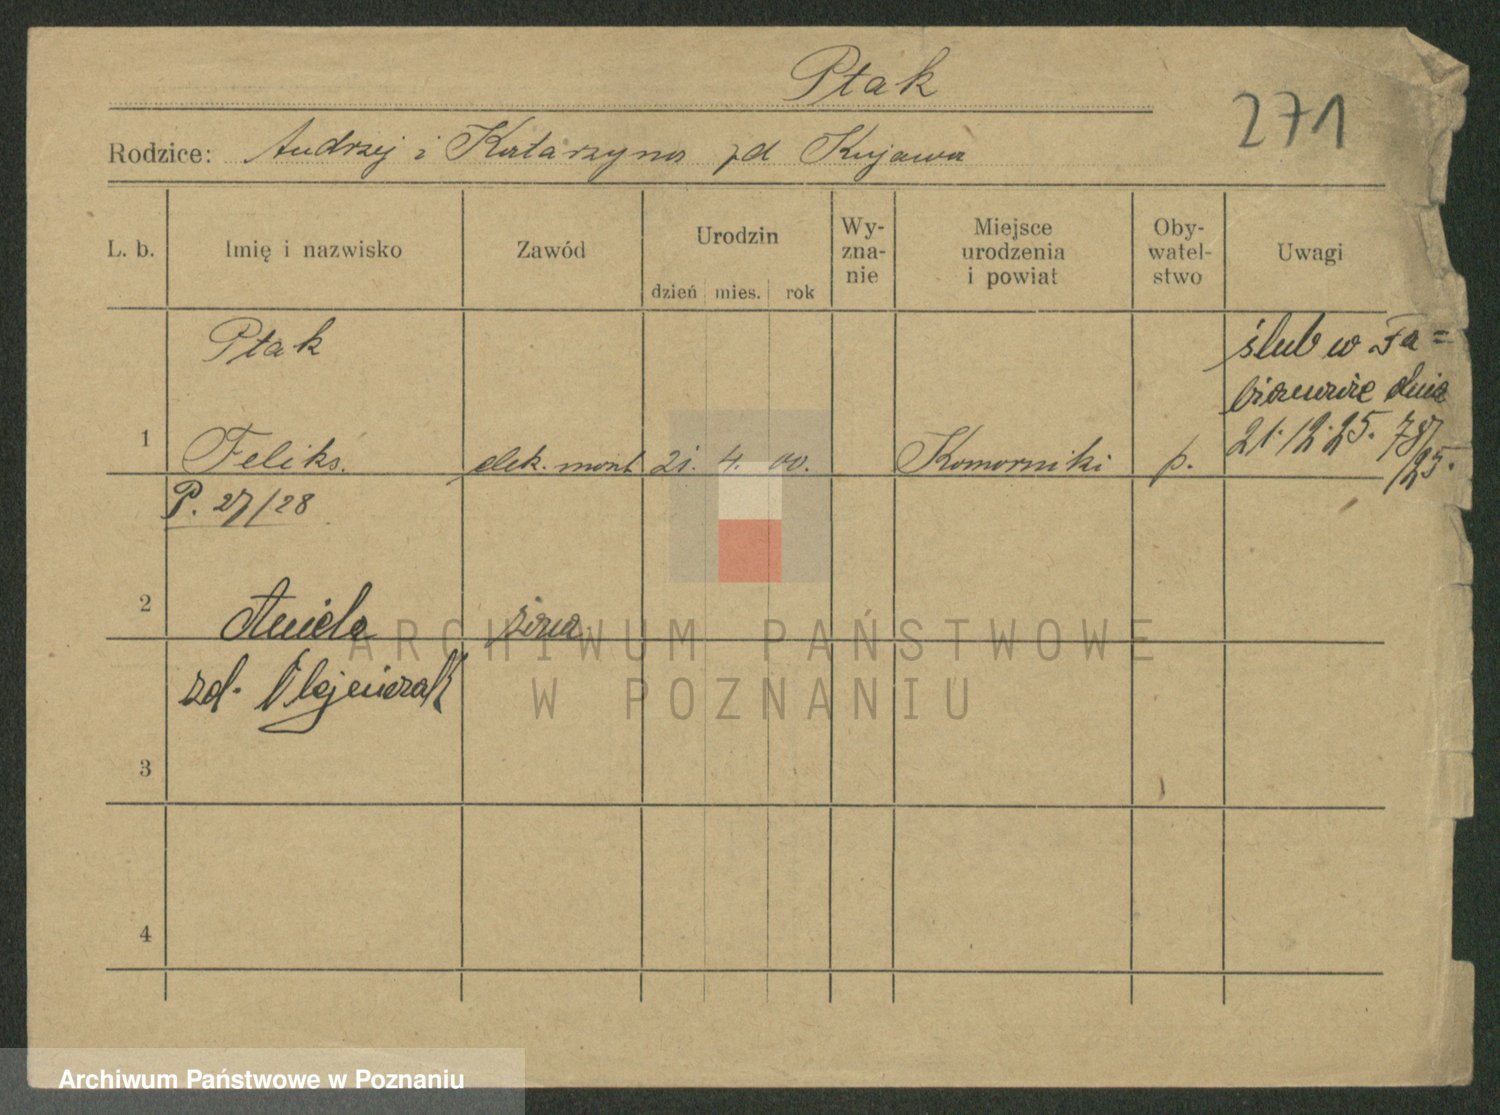 Ptak
271
Rodzice: Andrzej i Katarzyna zd Kujawa
L. b.
Imię i nazwisko
Zawód
Urodzin
dzień mies. rok
Wy-
zna-
nie
Miejsce
urodzenia
i powiat
Oby-
watel-
stwo
Uwagi
Ptak
1 Feliks. elek. mont. 21. 4. 00. Komorniki p.
ślub w Fa=
bianowie dnia
21.12.25. 787
/25.
P. 27/28
2 Aniela żona
zd. Olejniczak
3
4
ARCHIWUM PAŃSTWOWE
W POZNANIU
Archiwum Państwowe w Poznaniu